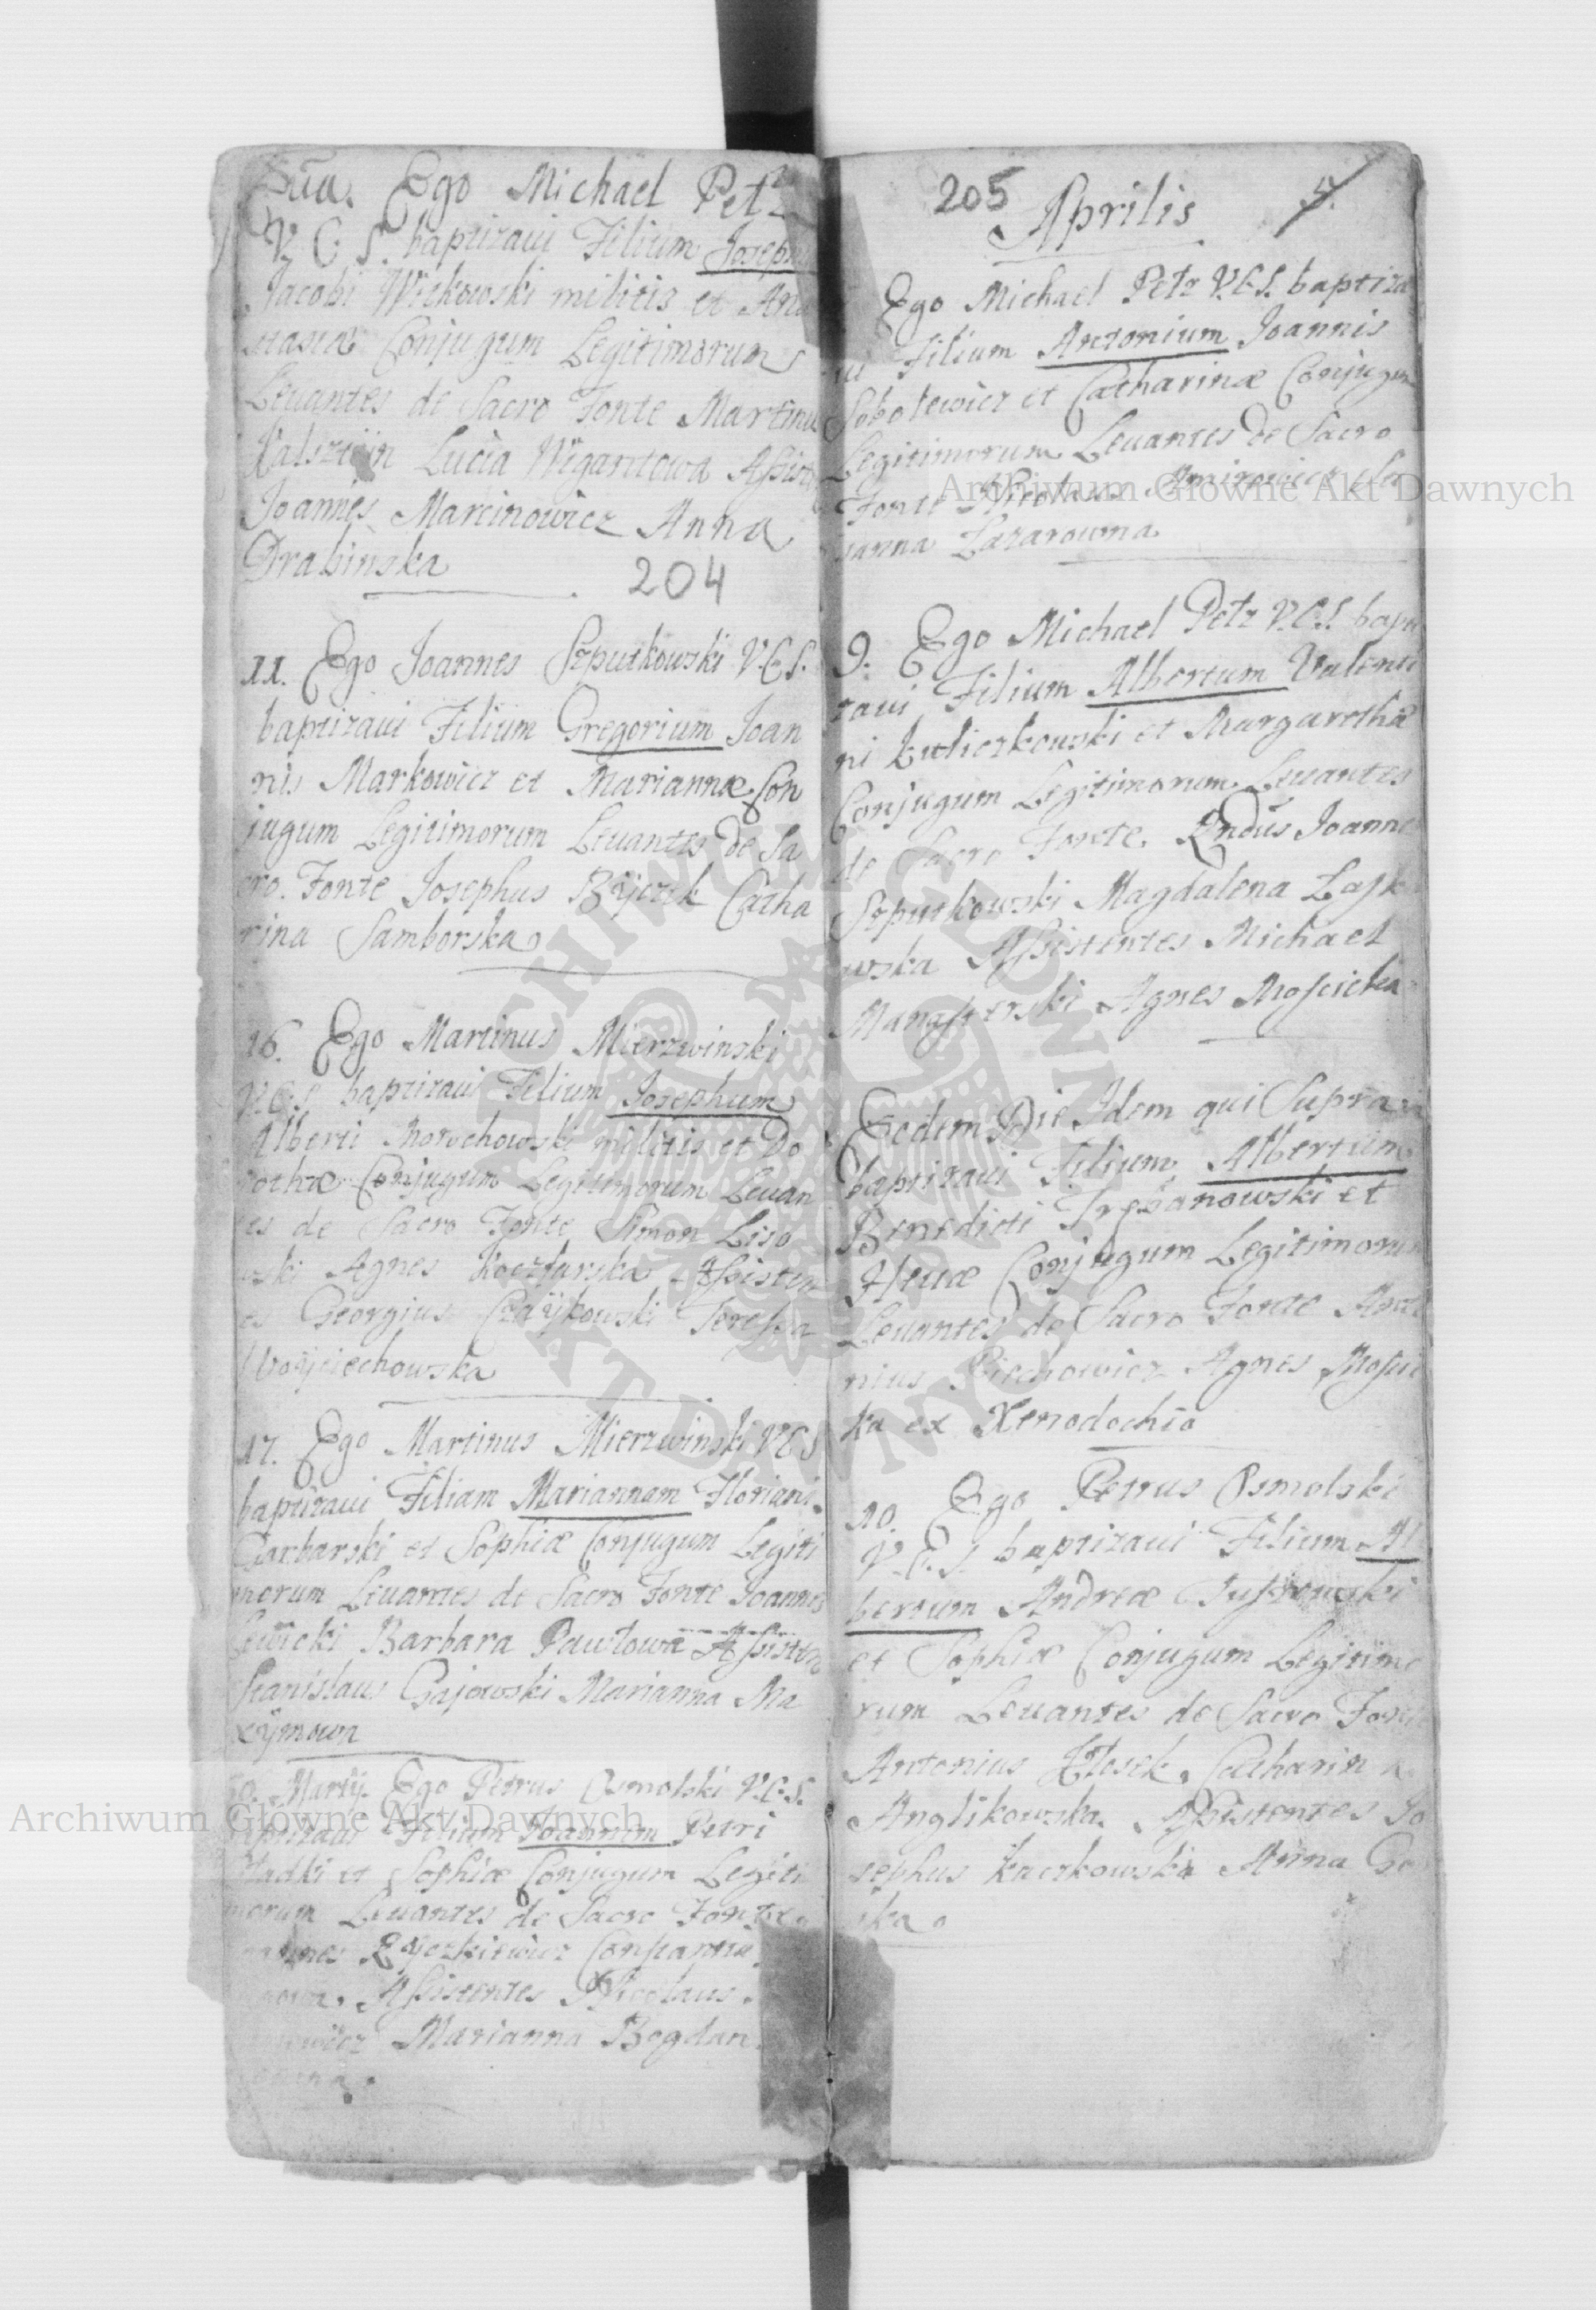 Ego Michael Petz
V. C. S. baptizavi Filium Joseph
Jacobi Wickowski militis et Ana
stasiæ Conjugum Legitimorum
Levantes de Sacro Fonte Martinu
Lucia Wigantowa Assist
Joannes Marcinowicz Anna
Drabinska
204
11. Ego Joannes Szputkowski V.C.S.
baptizavi Filium Gregorium Joan
nis Markowicz et Mariannæ Con
jugum Legitimorum Levantes de Sa
cro. Fonte Josephus Byczek Catha
rina Samborska
16. Ego Martinus Mierzwinski
V.C.S. baptizavi Filium Josephum
Alberti Morochowski militis et Do
rothæ Conjugum Legitimorum Levan
tes de Sacro Fonte Simon Liso
wski Agnes Assisten
es Georgius Czaÿkowski Teressa
Woÿciechowska
17. Ego Martinus Mierzwinski V.C.S
baptizavi Filiam Mariannam Floriani
Garbarski et Sophiæ Conjugum Legiti
morum Levantes de Sacro Fonte Joannes
Lewicki Barbara Pawłowa Assisten
Stanislaus Gajowski Marianna Ma
xÿmowa
Martÿ. Ego Petrus Osmolski V.C.S.
baptizavi Filium Joannem Petri
et Sophiæ Conjugum Legiti
morum Levantes de Sacro Fonte
Assistentes Nicolaus
Marianna Bogdan
205
Aprilis
Ego Michael Petz V.C.S. baptiza
vi Filium Antonium Joannis
Sobolewicz et Catharinæ Conjugum
Legitimorum Levantes de Sacro
Fonte Nicolaus
Lazarowna
9. Ego Michael Petz V.C.S. bapti
zavi Filium Albertum Valenti
ni Kuliczkowski et Margarethæ
Conjugum Legitimorum Levantes
de Sacro Fonte. Rndus Joannes
Szputkowski Magdalena Zask
wska Assistentes Michael
Agnes Moscicka
Eodem Die Idem qui Supra
baptizavi Filium Albertum
Benedicti Trębanowski et
Evæ Conjugum Legitimorum
Levantes de Sacro Fonte Anto
nius Piechowicz Agnes Mosci
ka ex Xenodochio
10. Ego Petrus Osmolski
V.C.S. baptizavi Filium Al
bertum Andreæ
et Sophiæ Conjugum Legitimo
rum Levantes de Sacro Fonte
Antonius Kłosek. Catharina
Anglikowska. Assistentes Jo
sephus Kaczkowski Anna Go
ska
Archiwum Główne Akt Dawnych
Archiwum Główne Akt Dawnych
ARCHIWUM GŁÓWNE AKT DAWNYCH